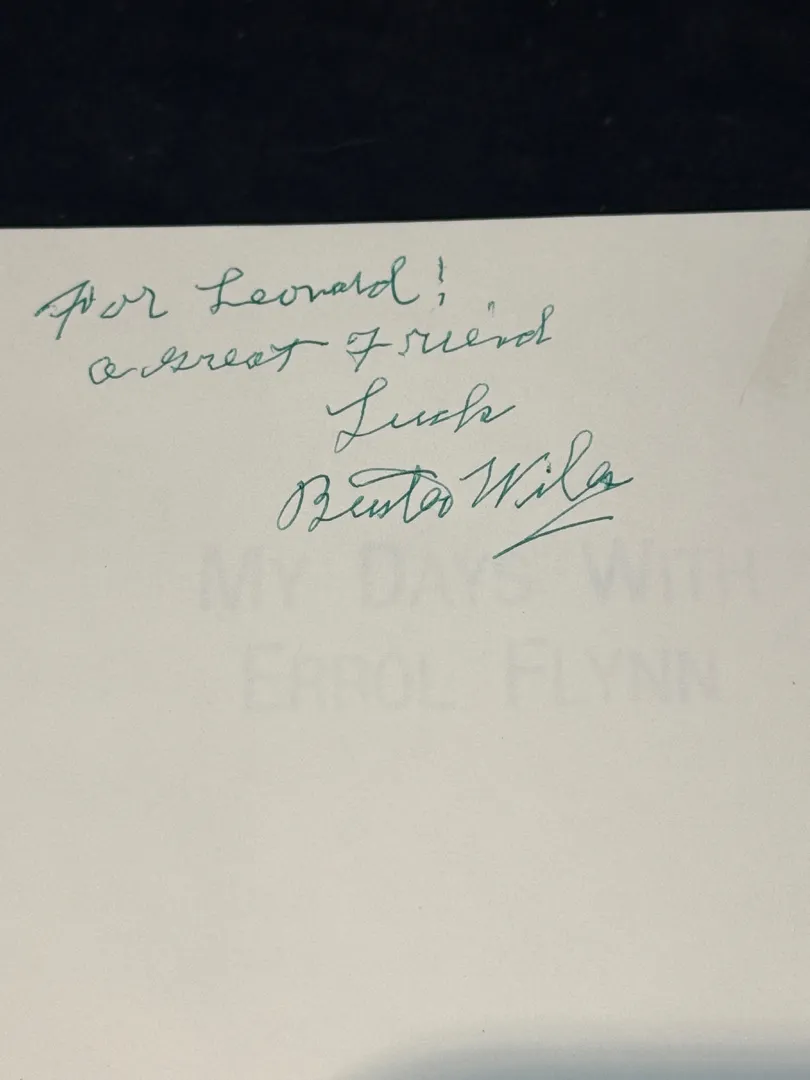 For Leonard!
a great Friend
Luck
Buster Wiles
MY DAYS WITH
ERROL FLYNN